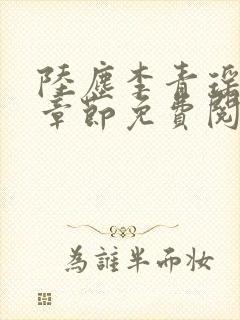 陸塵李青瑤
章節免費閱
為誰半而妝